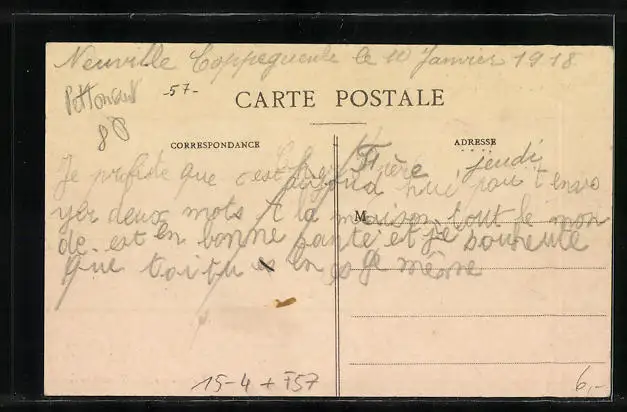 Neuville Coppegueule le 10 Janvier 1918
57-
CARTE POSTALE
80
CORRESPONDANCE
ADRESSE
Frère
Je profite que c'est aujourd hui jeudi pour t envo
yer deux mots A la maison tout le mon
M
de est en bonne santé et je souheute
que toi tu es en de même
15-4 + F57
6,-